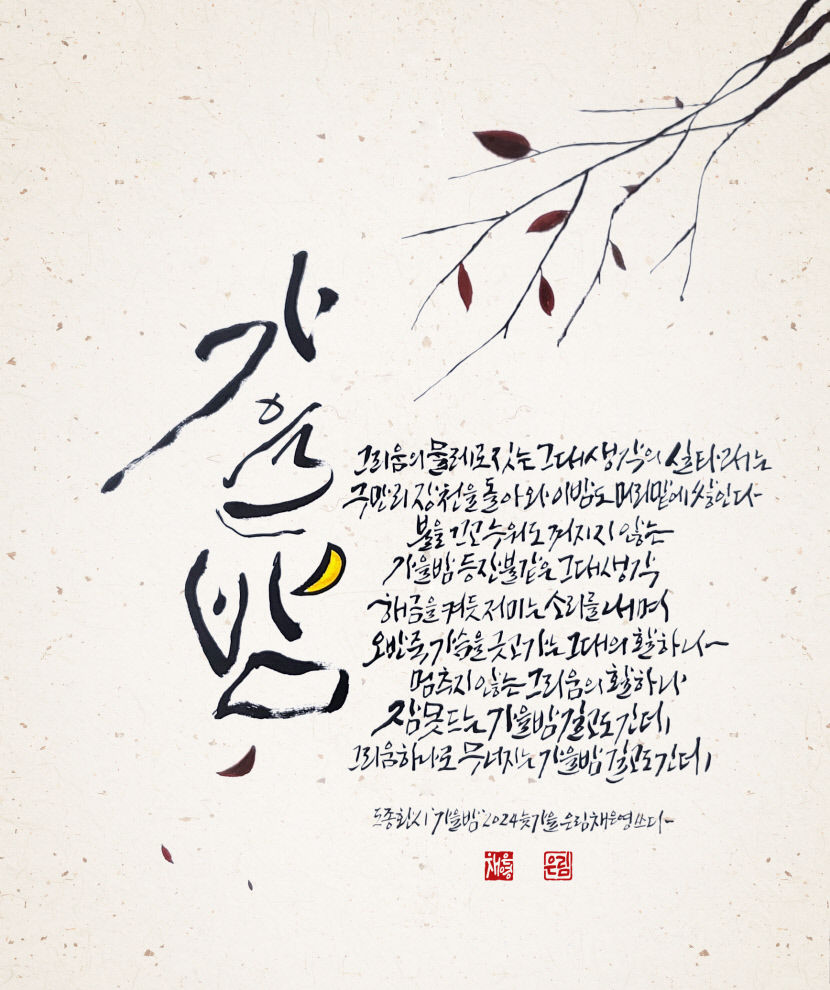 가을밤
그리움의 물레로 짓는 그대 생각의 실타래는
구만리 장천을 돌아와 이밤도 머리맡에 쌓인다
불을 끄고 누워도 꺼지지 않는
가을밤 등잔불같은 그대생각
해금을 켜듯 저미는 소리를 내며
오반죽 가슴을 긋고 가는 그대의 활하나
멈추지 않는 그리움의 활하나
잠못드는 가을밤 길고도 긴데
그리움하나로 무너지는 가을밤 길고도긴데
도종환시 '가을밤' 2024 늦가을 은림채은영쓰다
채은영 은림